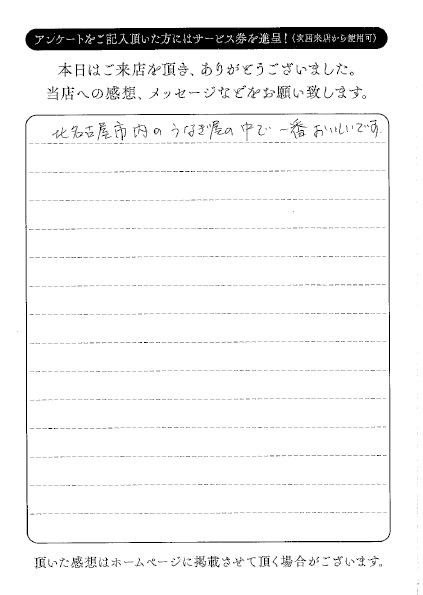 アンケートをご記入頂いた方にはサービス券を進呈！（次回来店から使用可）
本日はご来店を頂き、ありがとうございました。
当店への感想、メッセージなどをお願い致します。
北名古屋市内のうなぎ屋の中で一番おいしいです。
頂いた感想はホームページに掲載させて頂く場合がございます。